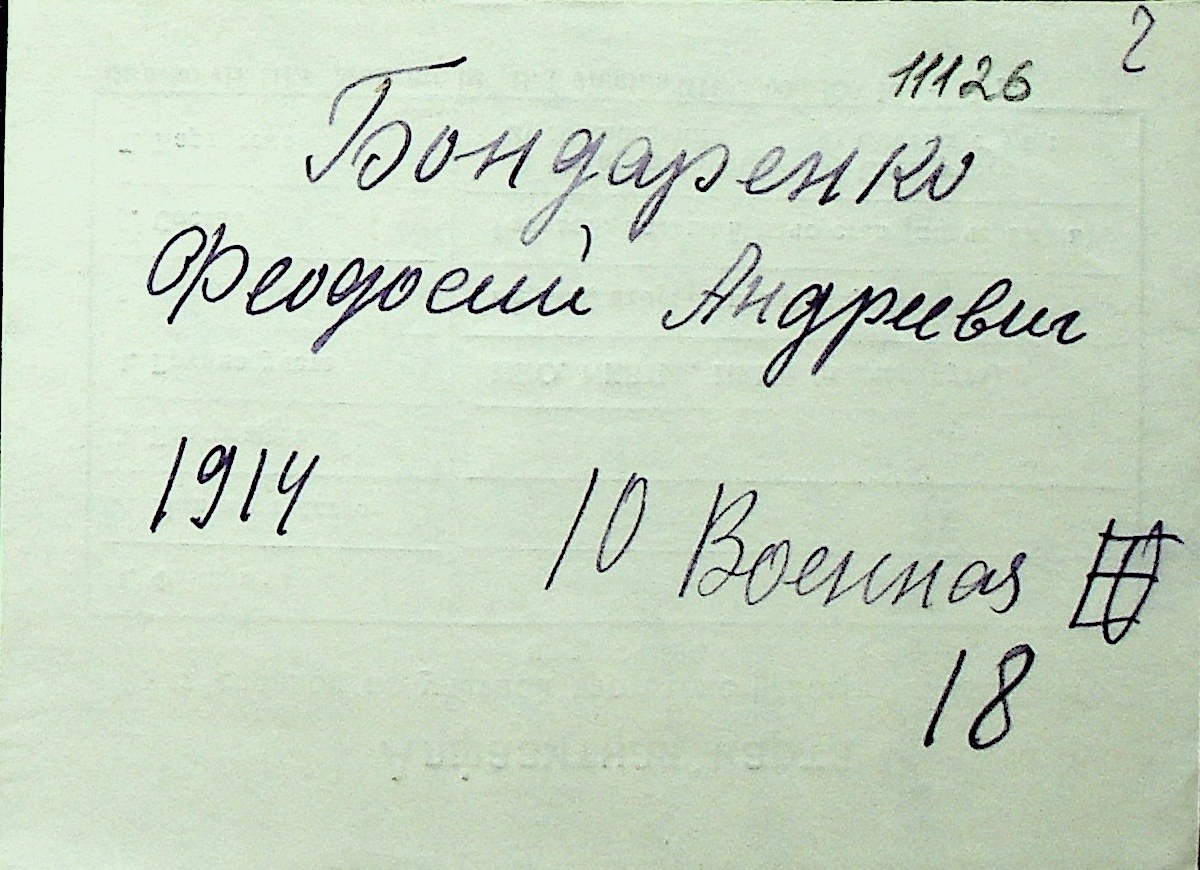 2
11126
Бондаренко
Феодосий Андреевич
1914 10 Военная
18